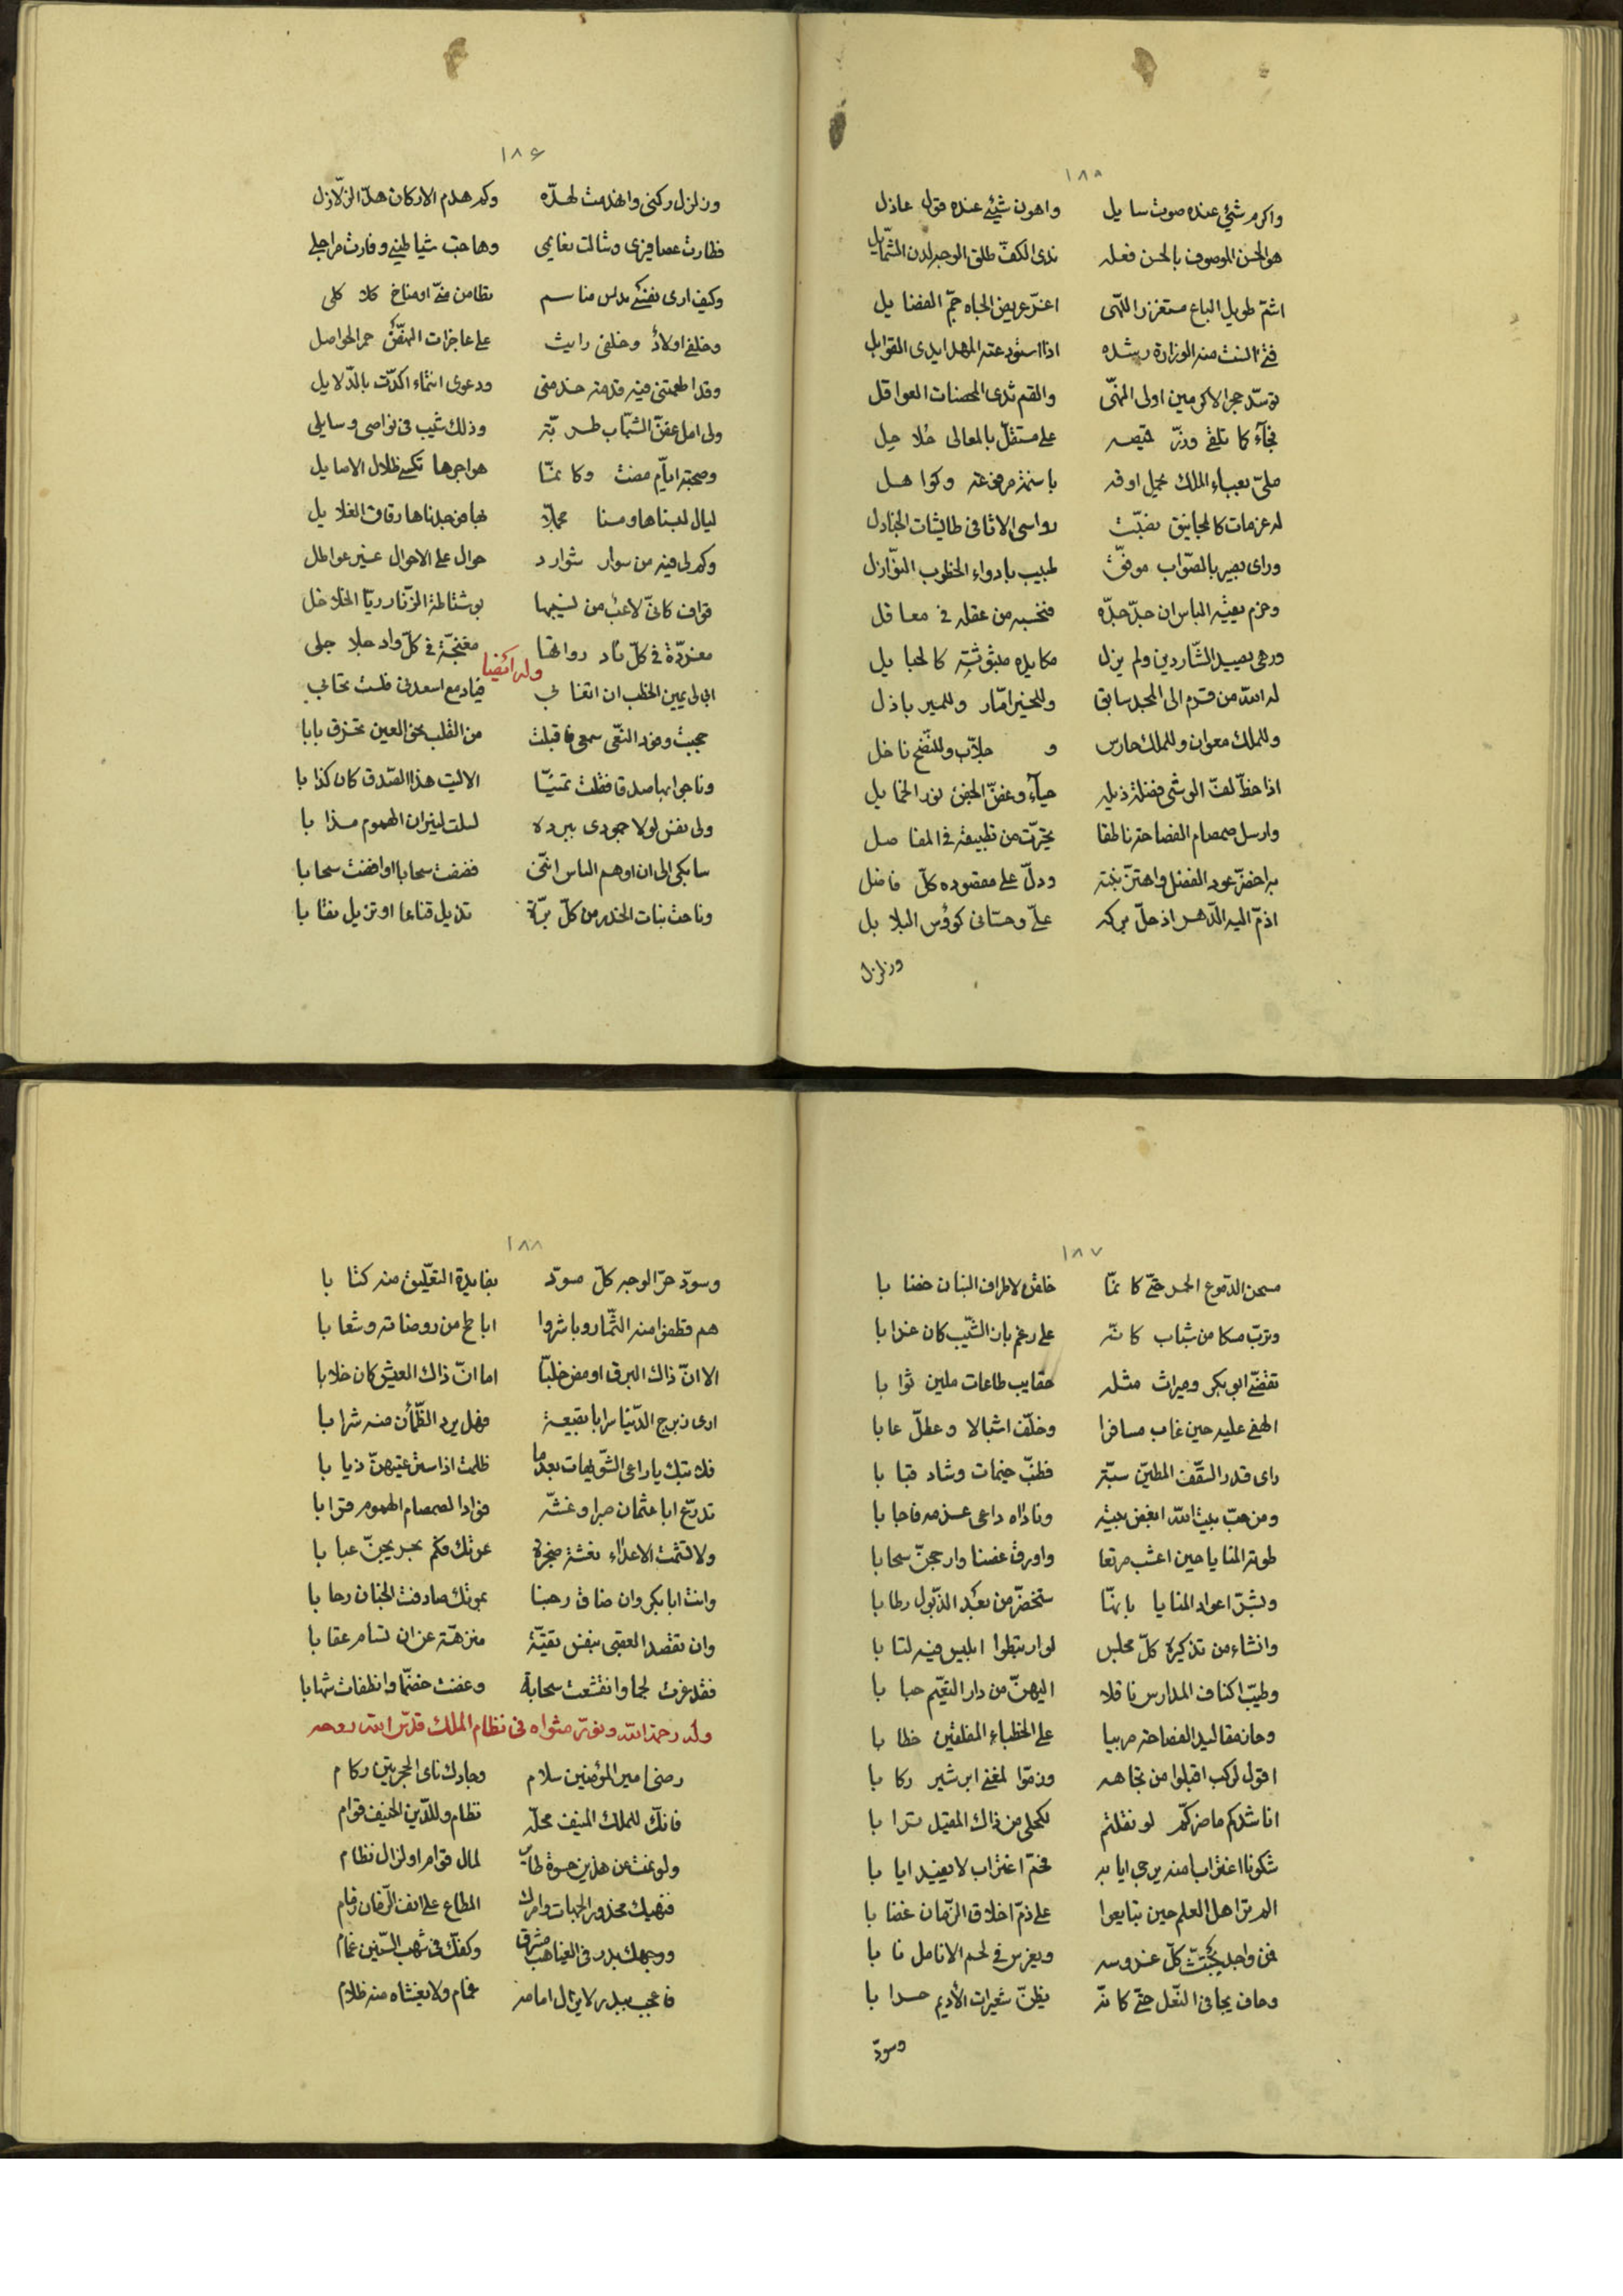 ١٨٥
واكرم شئ عنده صوت سايل واهون شيئ عنده قول عاذل
هو الحسن الموصوف بالحسن فعله ندى الكفّ طلق الوجه لدن الشمّايل
اشمّ طويل الباع مستغزر اللهى اغرّ عريض الجاه جمّ الفضايل
فتى انست منه الوزارة رشده اذا استودعته المهد ايدى القوابل
توسّد حجر الاكرمين اولى النهى والقم ثدى المحصنات العواقل
فجآء كما تلقى وزرّ قميصه على مستقلّ بالمعالى حُلاحِل
ملىّ بعباء الملك يحمل اوقه باسنمة مرفوعة وكواهل
له عزمات كالمجانيق تفتّت رواسى الاثافى طايشات الجنادل
وراى بصير بالصّواب موفّق طبيب بادواء الخطوب النّوازل
وحزم يعيه الباس ان جدّ جدّه فتحسبه من عقله فى معاقل
ودهى يصيد الشّاردين ولم يزل مكايده مبثوثةِ كالحبايل
له الله من قرم الى المجد سابق وللخير امّار وللمير باذل
وللملك معوان وللملك حارس و جلاّب وللنّصح ناخل
اذا خطّ لفّ الوشى فضلة ذيله حيآء وغضّ الجفن نور الخمايل
وارسل صمصام الفصاحة ناطقا تحيّرت من تطبيقه فى المفاصل
به اخضرّ عود الفضل واهتزّ نبته ودلّ على مقصوده كلّ فاضل
اذمّ اليه الدّهر اذ حلّ بركه علىّ وحسّانى كؤس البلابل
وزلزل
١٨۶
وزلزل ركنى وانهدمت لهدّه وكم هدم الاركان هدّ الزّلازل
فطارت عصافيرى وشالت نعايمى وهاجت شياطينى وفارت مراجلى
وكيف ارى نفسى مناسم تظامن منّى او مناخ كلاكلى
وخلفى اولادٌ وخلفى رايت على عاجزات النهض حمر الحواصل
وقد اطمعتنى فيه قدمة خدمتى ودعوى انتماء اكدّت بالدّلايل
ولى امل غضّ الشّباب طربّته وذلك شيب فى نواصى وسايلى
وصحبة ايّام مضت وكانمّا هواجرها تكسى ظلال الاصايل
ليال لبسناها ومسنا تجملاّ بها من جدناها رقاق الغلايل
وكم لى فيه من سوار شوارد حوال على الاحوال غير عواطل
قواف كانّى لاعب من نسيجها بوشاطة الزّنار ريّا الخلاخل
مغرّدة فى كلّ ناد رواتها مغنجّة فى كلّ واد جلاجلى
وله ايضا
ابى لى يمين الخطب ان اتغابى فياد مع اسعدنى فلست تحابى
حجبت وفود النّعى سمعى فاقبلت من القلب نحو العين تخرق بابا
وناجوا بها صدقا فقلت تمنيّا الا ليت هذا الصّدق كان كذابا
ولى نفس لولا جمودى ببرده لسلت لنيران الهموم مذابا
سابكى الى ان اوهم الناس انّنى فضضت سحابا او افضت سحابا
وناحت بنات الخدر من كلّ برّة تذيل قناعا او تزيل نقابا
١٨٧
مسحن الدّموع الحمر حتّى كانمّا خلقن لاطراف البنان خضابا
وترتّب مسكا من شباب كانّه على رغم بان الشّيب كان غرابا
تقضّى ابو بكر وميراث مثله حقايب طاعات ملين ثوابا
الهفى عليه حين غاب مسافرا وخلّف اشبالا وعطلّ غابا
راى قدر السّقف المطيّن سبّة فطنّب خيمات وشاد قبابا
ومن حبّ بيت الله ابغض بيته وناداه داعى عزمه فاجابا
طوته المنايا حين اعشب مرتعا واورق غصنا وارجحنّ سحابا
وبشرّ اعواد المنايا بانهّا ستخضرّ من بعد الذّبول رطابا
وانشاء من تذكيره كلّ مجلس لو ارتبطوا ابليس فيه لتابا
وطيّب اكناف المدارس ناقلا اليهنّ من دار النعيّم جبابا
وحاز مقاليد الفصاحة مربيا على الخطباء المفلقين خطابا
اقول لركب اقبلوا من تجاهه وزمّوا لمغنى ابرشير ركابا
اناشدكم ماضركمّ لو نقلتم لكحلى من ذاك المقيل ترابا
شكونا اغترابا منه يرجى ايابه فختمّ اغتراب لا يفيد ايابا
الم تر اهل العلم حين تتابعوا على ذمّ اخلاق الزّمان غضابا
فمن واجد يجتثّ كلّ عذوسه ويغرس فى لحم الانامل نابا
وحاف يجافى النّعل حتّى كانّه يظنّ شعيرات الأديم حرابا
وسودّ
١٨٨
وسودّ حرّ الوجه كلّ مسودّ بفايدة التعّليق منه كتابا
هم قطفوا منه الثّمار وباشروا اباطح من روضاته وشعابا
الا انّ ذاك البرق اومض خلبّا اما انّ ذاك العيش كان خلابا
ارى زبرج الدّنيا سرابا بقيعة فهل يرد الظّمأن منه شرابا
فلا تبك يا راعى الشّويهات بعدما ظلمت اذا سترعيتهنّ ذيابا
تدرّع ابا عثمان صبرا وغشّه فؤادا لصمصام الهموم قرابا
ولا تشمت الاعداء نغشة ضجرة عرتك فكم بحر يجنّ عبابا
وانت ابا بكر وان ضاق رحبنا بموتك صادفت الجنان رحابا
وان تقصد العقبى بنفس نقيّة منزهّة عن ان تسام عقابا
فقد غرت لجا وانقشعت سحابة وغضت خضمّا وانطفات شهابا
وله رحمة الله ونوّر مثواه فى نظام الملك قدّس الله روحه
رضى امير المؤمنين سلام وجادك ناى الحجرتين ركام
فانّك للملك المنيف محلّه نظام وللدّين الحنيف قوام
ولو غبت عن هذين حسوة طاير لمال قوام او لزال نظام
فنهيك محذور الجنبات وامرك المطاع على انف الزّمان زمام
ووجهك بدر فى الغياهب مشرق وكفّك فى شهب السّنين غمام
فاعجب ببدر لا يزال امامه غمام ولا يغشاه منه ظلام